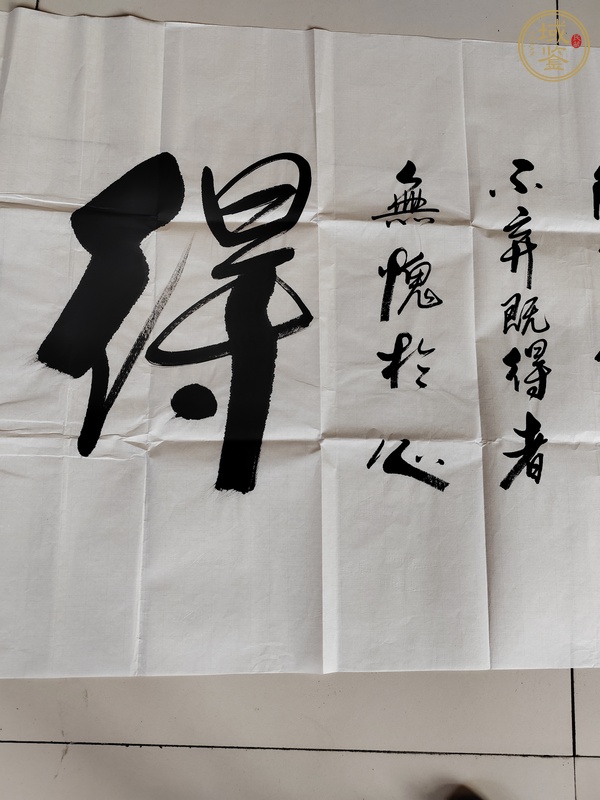 不弃既得者
無愧於心
得
域鉴